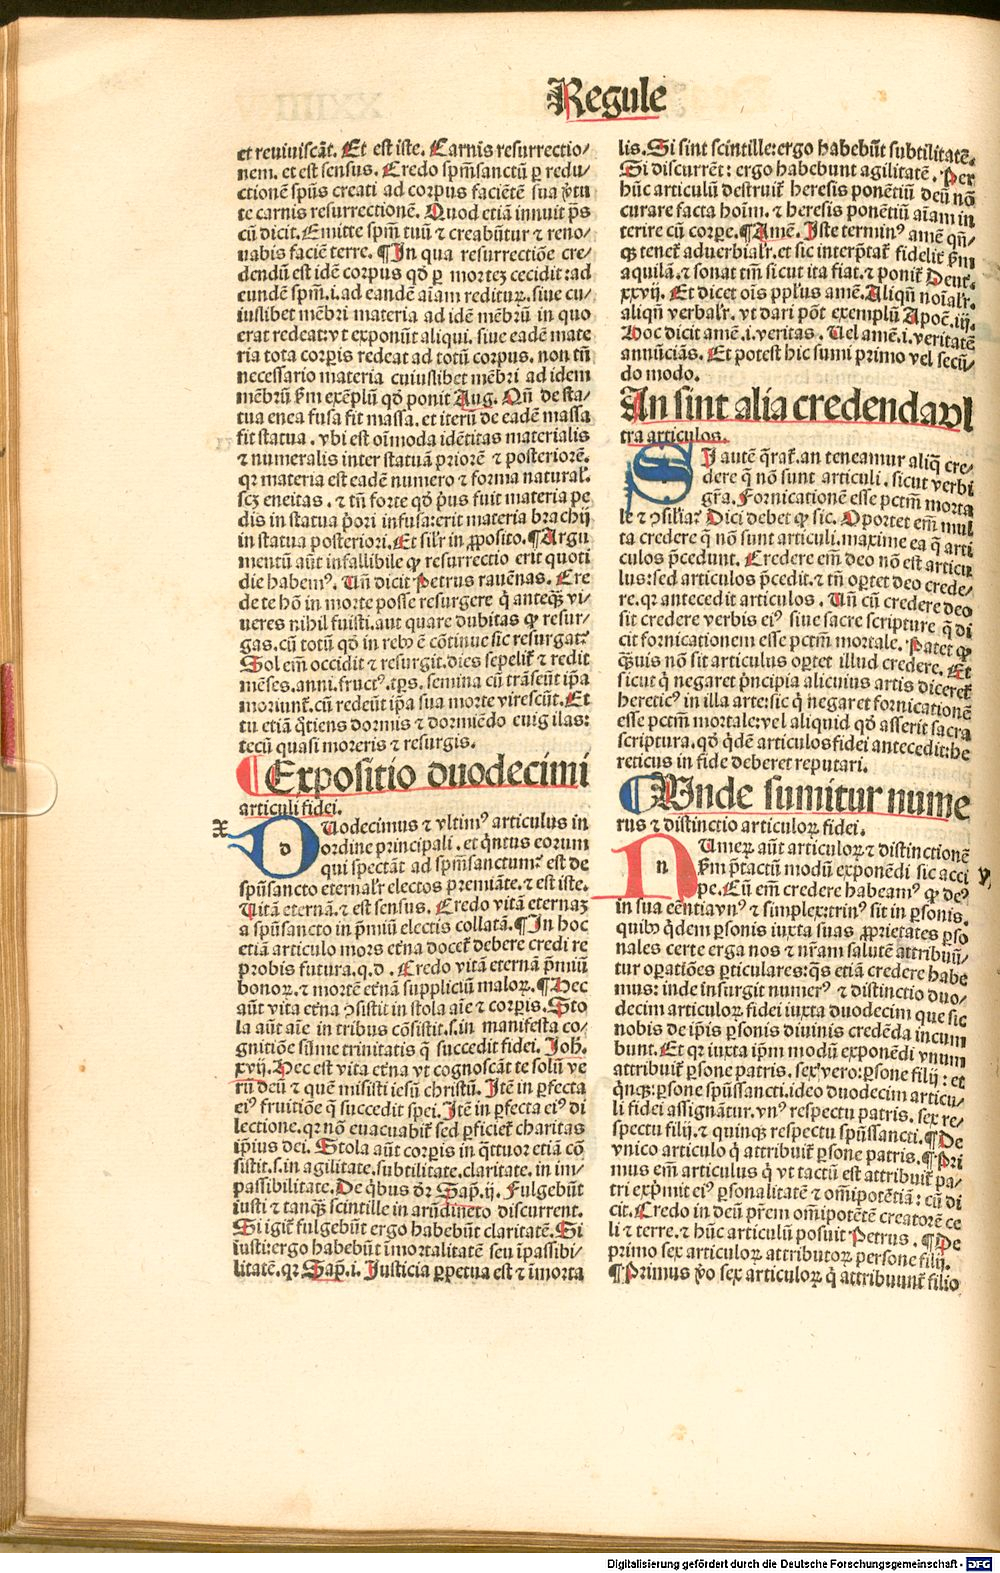 Regule
et reuiuiscāt. Et est iste. Carnis resurrectio/
nem. et est sensus. Credo spm̄sanctū ꝑ redu/
ctionē spūs creati ad corpus faciētē sua v̓tu
te carnis resurrectionē. Quod etiā innuit p̄s
cū dicit. Emitte spm̄ tuū ⁊ creabūtur ⁊ reno/
uabis faciē terre. ¶ In qua resurrectiōe cre/
dendū est idē corpus qd̓ ꝑ morteꝫ cecidit: ad
eundē spm̄.i. ad eandē aīam reditur̄. siue cu/
iuslibet mēbri materia ad idē mēbrū in quo
erat redeat: vt exponūt aliqui. siue eadē mate
ria tota corꝑis redeat ad totū corpus. non tn̄
necessario materia cuiuslibet mēbri ad idem
mēbrū ẜm exēplū qd̓ ponit Aug. Qn̄ de sta/
tua enea fusa fit massa. et iterū de eadē massa
fit statua. vbi est oīmoda idētitas materialis
⁊ numeralis inter statuā priorē ⁊ posteriorē.
qr materia est eadē numero ⁊ forma natural̓.
scꝫ eneitas. ⁊ tn̄ forte qd̓ p̓us fuit materia pe
dis in statua p̓ori infusa: erit materia brachij
in statua posteriori. Et sil̓r in ꝓposito. ¶ Argu
mentū aūt infallibile ꝙ resurrectio erit quoti
die habem⁹. Un̄ dicit Petrus rauēnas. Cre
de te hō in morte posse resurgere q̓ anteqꝫ vi/
ueres nihil fuisti. aut quare dubitas ꝙ resur/
gas. cū totū qd̓ in rebꝰ ē cōtinue sic resurgat?
Sol em̄ occidit ⁊ resurgit. dies sepelit̓ ⁊ redit
mēses. anni. fruct⁹. tꝑs. semina cū trāseūt ip̄a
moriunt̓. cū redeūt ip̄a sua morte virescūt. Et
tu etiā q̓tiens dormis ⁊ dormiēdo euigilas:
tecū quasi moreris ⁊ resurgis.
¶ Expositio duodecimi
articuli fidei.
x
d
Uodecimus ⁊ vltim⁹ articulus in
ordine principali. et q̓ntus eorum
qui spectāt ad spm̄sanctum: est de
spūsancto eternal̓r electos p̄miāte. ⁊ est iste.
Uitā eternā. ⁊ est sensus. Credo vitā eternaꝫ
a spūsancto in p̄miū electis collatā. ¶ In hoc
etiā articulo mors et̓na docet̓ debere credi re
probis futura. q.d. Credo vitā eternā p̄miū
bonoꝝ. ⁊ mortē et̓nā suppliciū maloꝝ. ¶ Hec
aūt vita et̓na ꝯsistit in stola aīe ⁊ corꝑis. Sto
la aūt aīe in tribus cōsistit. s. in manifesta co/
gnitiōe sūme trinitatis q̄ succedit fidei. Joh̄.
xvij. Hec est vita et̓na vt cognoscāt te solū ve
rū deū ⁊ quē misisti iesū christū. Itē in ꝑfecta
ei⁹ fruitiōe q̄ succedit spei. Itē in ꝑfecta ei⁹ di
lectione. qr nō euacuabit̓ sed ꝑficiet̓ charitas
ip̄ius dei. Stola aūt corꝑis in q̓ttuor etiā cō
sistit. s. in agilitate. subtilitate. claritate. in im/
passibilitate. De q̓bus dr̄ Sap̄. ij. Fulgebūt
iusti ⁊ tanqꝫ scintille in arūdineto discurrent.
Si igit̓ fulgebūt ergo habebūt claritatē. Si
iusti: ergo habebūt īmortalitatē seu īpassibi/
litatē. qr Sap̄. i. Justicia ꝑpetua est ⁊ īmorta
lis. Si sint scintille: ergo habebūt subtilitatē.
Si discurrēt: ergo habebunt agilitatē. Per
hūc articulū destruit̓ heresis ponētiū deū nō
curare facta hoīm. ⁊ heresis ponētiū aīam in
terire cū corꝑe. ¶ Amē. Iste termin⁹ amē qn̄/
qꝫ tenet̓ aduerbial̓r. et sic interp̄tat̓ fidelit̓ ẜm
aquilā. ⁊ sonat tm̄ sicut ita fiat. ⁊ ponit̓ Deut̓.
xxvij. Et dicet oīs ppl̓us amē. Aliqn̄ noīal̓r.
aliqn̄ verbal̓r. vt dari pōt exemplū Apoc̄. iij.
Hoc dicit amē .i. veritas. Uel amē .i. veritatē
annūciās. Et potest hic sumi primo vel secū/
do modo.
An sint alia credenda vl
tra articulos.
S
I autē q̄rat̓. an teneamur aliq̄ cre/
dere q̄ nō sunt articuli. sicut verbi
gr̄a. Fornicationē esse pctm̄ morta
le ⁊ ꝯsilia? Dici debet ꝙ sic. Oportet em̄ mul
ta credere q̄ nō sunt articuli. maxime ea q̄ arti
culos p̄cedunt. Credere em̄ deo nō est articu
lus: sed articulos p̄cedit. ⁊ tn̄ oꝑtet deo crede/
re. qr antecedit articulos. Un̄ cū credere deo
sit credere verbis ei⁹ siue sacre scripture q̄ di
cit fornicationem esse pctm̄ mortale. Patet ꝙ
qꝫuis nō sit articulus oꝑtet illud credere. Et
sicut q̓ negaret p̓ncipia alicuius artis diceret̓
heretic⁹ in illa arte: sic q̓ negaret fornicationē
esse pctm̄ mortale: vel aliquid qd̓ asserit sacra
scriptura. qd̓ q̓dē articulos fidei antecedit: he
reticus in fide deberet reputari.
¶ Unde sumitur nume
rus ⁊ distinctio articuloꝝ fidei.
n
Umeꝝ aūt articuloꝝ ⁊ distinctionē
ẜm p̄tactū modū exponēdi sic acci
pe. Cū em̄ credere habeam⁹ ꝙ de⁹
y
in sua eēntia vn⁹ ⁊ simplex: trin⁹ sit in ꝑsonis.
quibꝰ q̓dem ꝑsonis iuxta suas ꝓprietates ꝑso
nales certe erga nos ⁊ nr̄am salutē attribuū/
tur oꝑatiōes ꝑticulares: q̄s etiā credere habe
mus: inde insurgit numer⁹ ⁊ distinctio duo/
decim articuloꝝ fidei iuxta duodecim que sic
nobis de ip̄is ꝑsonis diuinis credēda incum
bunt. Et qr iuxta ip̄m modū exponēdi vnum
attribuit̓ ꝑsone patris. sex vero: ꝑsone filij: et
q̓nqꝫ: ꝑsone spūssancti. ideo duodecim articu/
li fidei assignātur. vn⁹ respectu patris. sex re/
spectu filij. ⁊ quinqꝫ respectu spūssancti. ¶ De
vnico articulo q̓ attribuit̓ ꝑsone patris. ¶ Pri
mus em̄ articulus q̓ vt tactū est attribuit̓ pa/
tri exp̓mit ei⁹ ꝑsonalitatē ⁊ om̄ipotētiā: cū di
cit. Credo in deū pr̄em om̄ipotētē creatorē ce
li ⁊ terre. ⁊ hūc articulū posuit Petrus. ¶ De
primo sex articuloꝝ attributoꝝ persone filij.
¶ Primus v̓o sex articuloꝝ q̓ attribuunt̓ filio
Digitalisierung gefördert durch die Deutsche Forschungsgemeinschaft - DFG